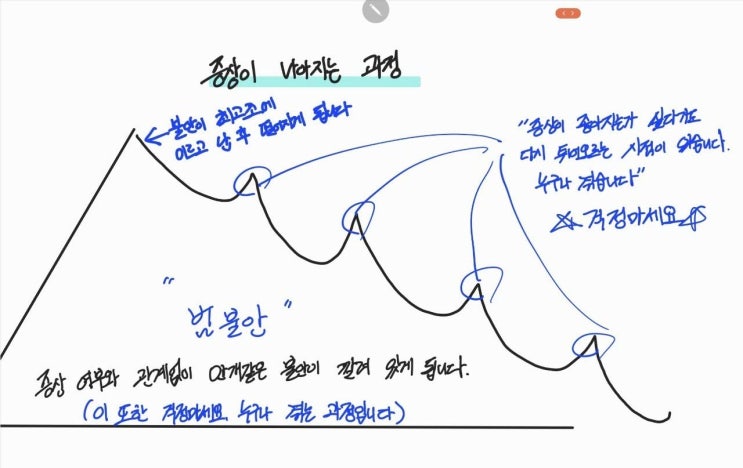 증상이 나아지는 과정
불안이 최고조에
이르고 난 후 떨어지게 됩니다
"증상이 좋아지는가 싶다가도
다시 튀어오르는 시점이 있습니다.
누구나 겪습니다"
걱정마세요
"범불안"
증상 여부와 관계없이 안개같은 불안이 깔려 있게 됩니다.
(이 또한 걱정마세요. 누구나 겪는 과정입니다)